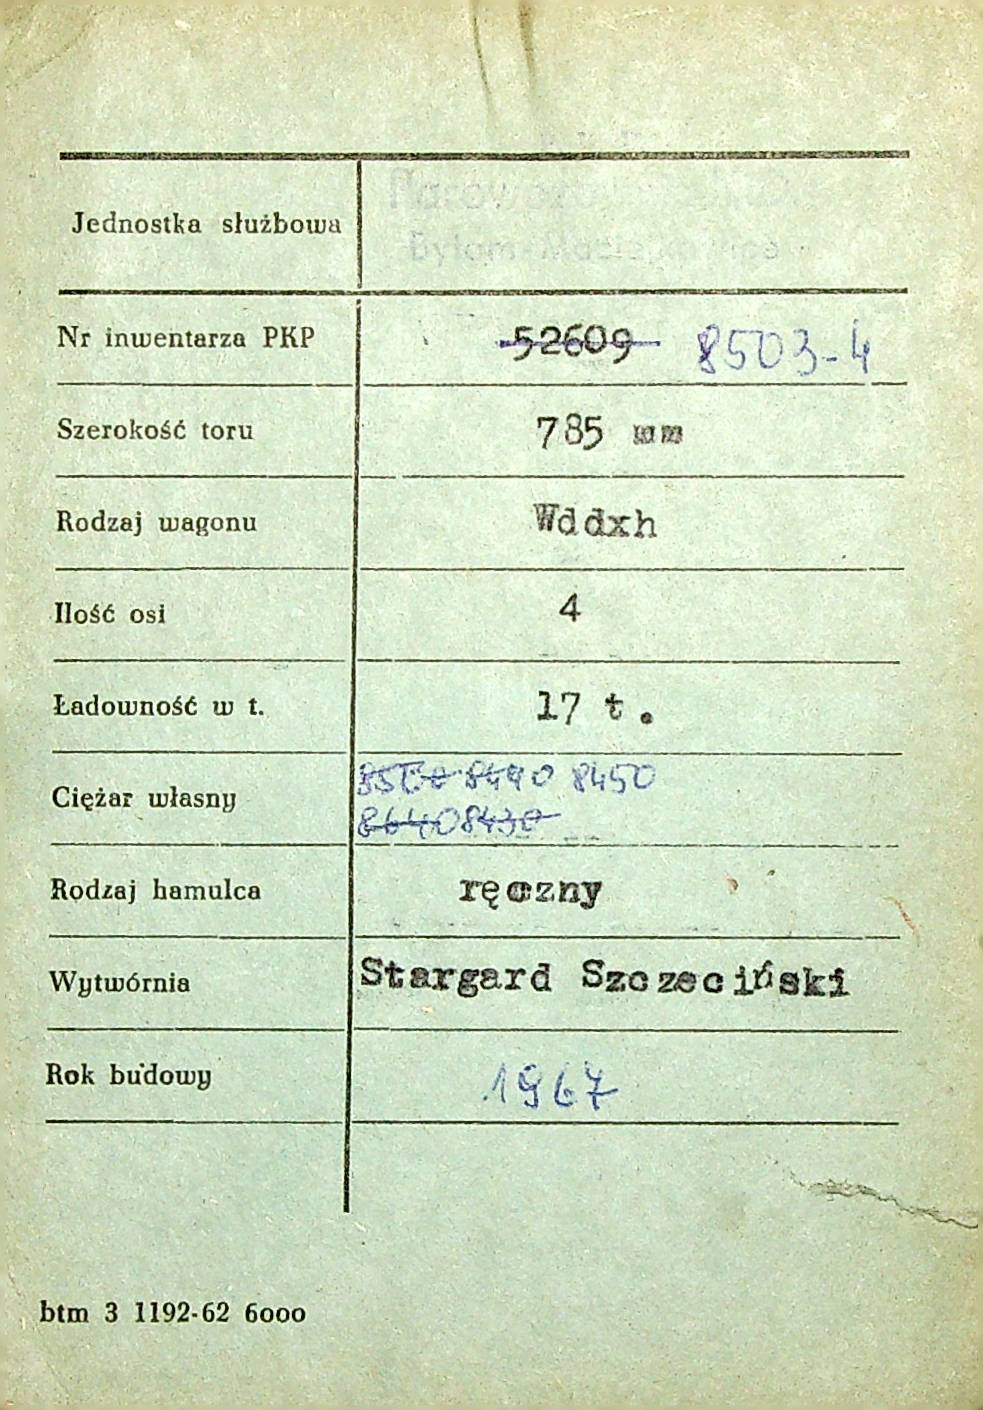 Jednostka służbowa
Nr inwentarza PKP 52609 8503-4
Szerokość toru 785 mm
Rodzaj wagonu Wddxh
Ilość osi 4
Ładowność w t. 17 t.
Ciężar własny 8490 8450
86408430
Rodzaj hamulca ręczny
Wytwórnia Stargard Szczeciński
Rok budowy 1967
btm 3 1192-62 6000